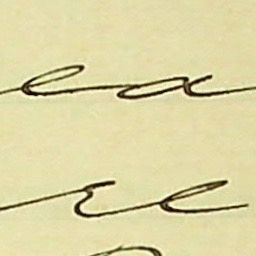 ea
re